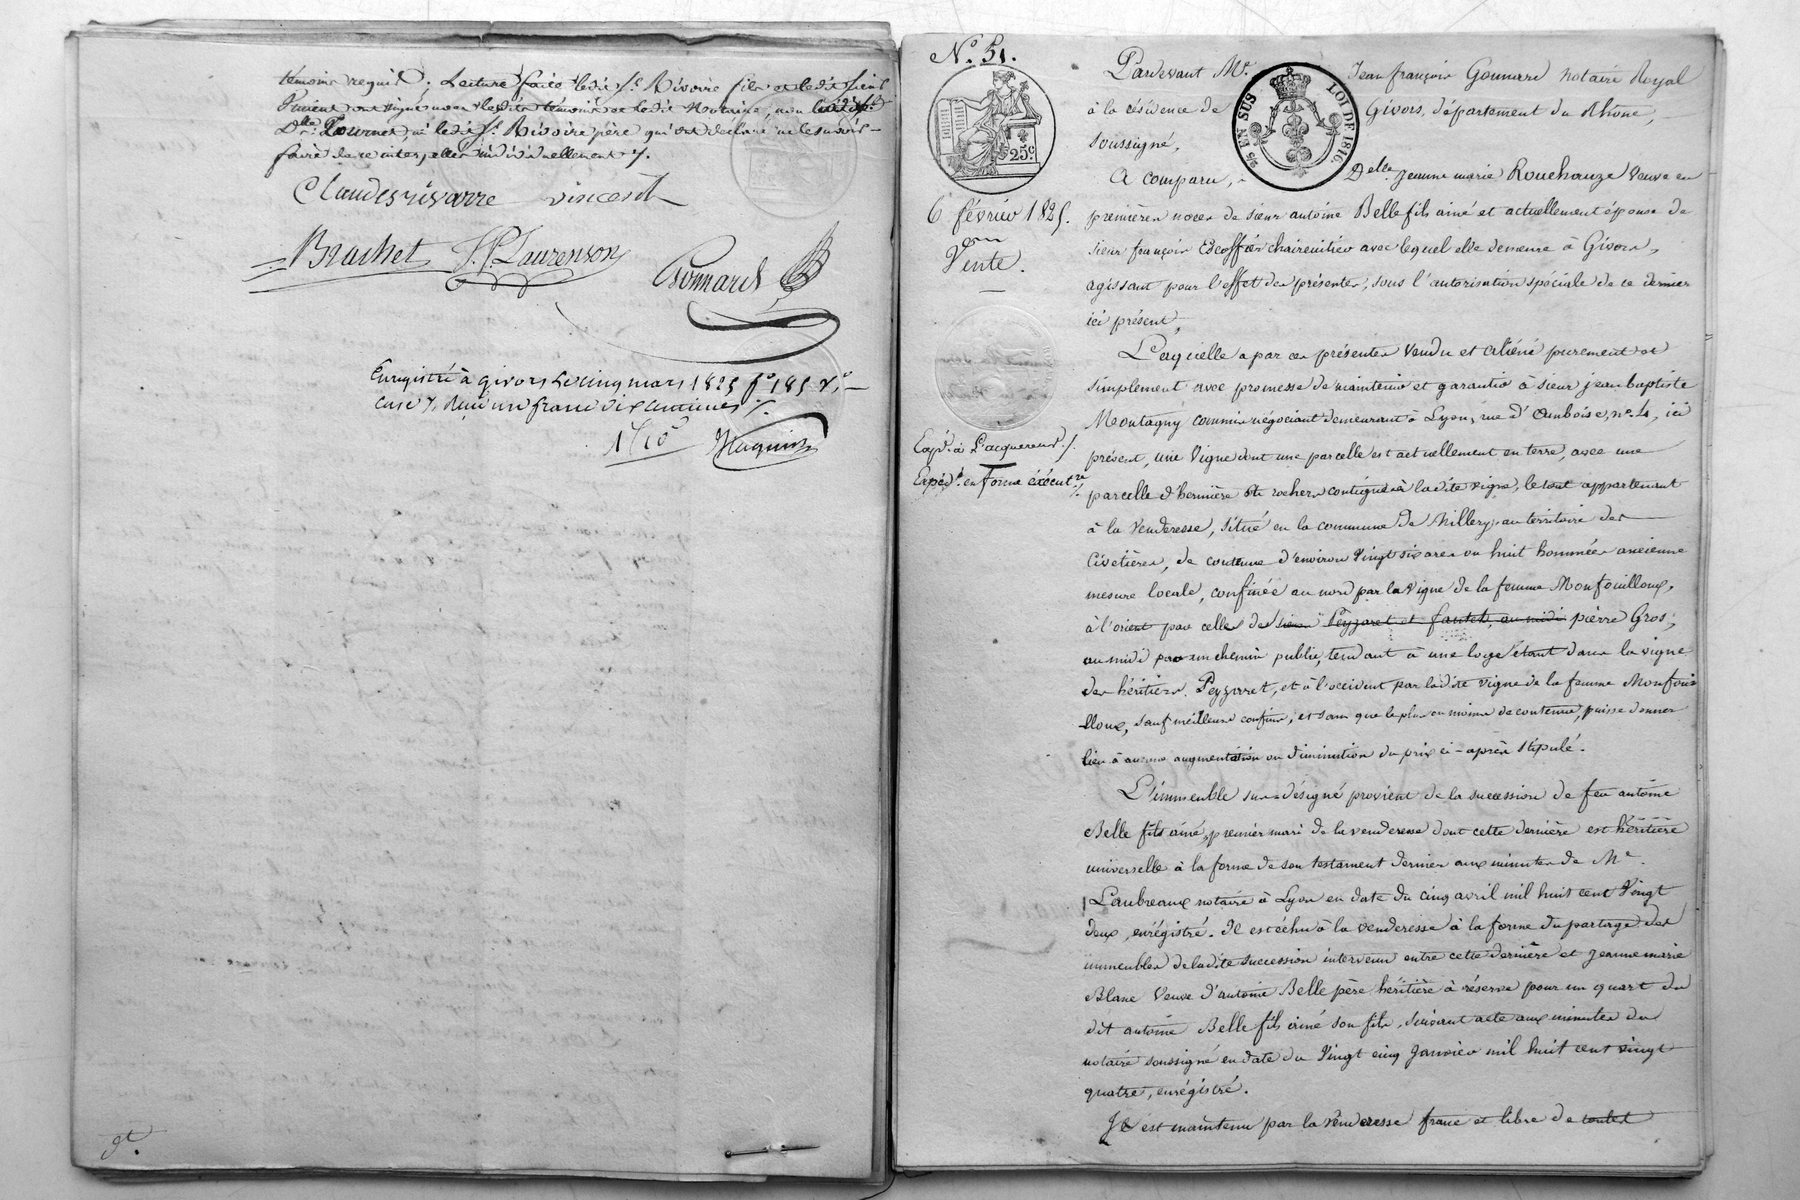 témoins requis ; Lecture faite ledit Sr. Rivoire fils et ledit sieur
Vincent ont signé avec lesdits témoins et ledit Notaire, non ladite
Dlle. Tournet ni ledit Sr. Rivoire père qui ont déclaré ne le savoir
faire de ce interpellés individuellement ./.
Claudesrivoirre vincent
Brachet J. P. Laurenson
Gonnard
Enregistré à givors le cinq mars 1825 fo. 185 vo.
case 7. Reçu un franc dix centimes ./.
1f 10c
No. 51.
25c.
5/5 EN SUS
LOI DE 1816.
6 février 1825.
Vente.
Expé. à l'acquereur ./.
Expéd. en forme exécutre ./.
Pardevant Me. Jean françois Gonnard notaire Royal
à la résidence de Givors, département du Rhône,
soussigné,
A comparu, Delle Jeanne marie Rouchouze veuve en
premières noces de sieur antoine Belle fils ainé et actuellement épouse de
sieur françois Escoffier chaircuitier avec lequel elle demeure à Givors,
agissant pour l'effet des présentes, sous l'autorisation spéciale de ce dernier
ici présent,
Laquelle a par ces présentes vendu et aliéné purement et
simplement avec promesse de maintenir et garantir à sieur jean baptiste
Montagny commis négociant demeurant à Lyon, rue d'Amboise, no. 4, ici
présent, une vigne dont une parcelle est actuellement en terre, avec une
parcelle d'hermière et rochers contigue à ladite vigne, le tout appartenant
à la venderesse, situé en la commune de Millery, au territoire des
Civetières, de contenue d'environ vingt six ares ou huit hommées ancienne
mesure locale, confinée au nord par la vigne de la femme Monfouilloux,
à l'orient par celles des sieurs Peyzaret et au midi pierre Gros ;
au midi par un chemin public, tendant à une loge étant dans la vigne
des héritiers Peyzarret, et à l'occident par ladite vigne de la femme Monfoui-
lloux, sauf meilleurs confins, et sans que le plus ou moins de contenue, puisse donner
lieu à aucune augmentation ou diminution du prix ci-après stipulé.
L'immeuble sus-désigné provient de la succession de feu antoine
Belle fils ainé, premier mari de la venderesse dont cette dernière est héritière
universelle à la forme de son testament dernier aux minutes de Me.
Laubreaux notaire à Lyon en date du cinq avril mil huit cent vingt
deux, enrégistré. Il est échu à la venderesse à la forme du partage des
immeubles de ladite succession intervenu entre cette dernière et Jeanne marie
Blanc veuve d'antoine Belle père héritière à réserve pour un quart du
dit antoine Belle fils ainé son fils, suivant acte aux minutes du
notaire soussigné en date du vingt cinq Janvier mil huit cent vingt
quatre, enrégistré.
Il est maintenu par la venderesse franc et libre de toutes